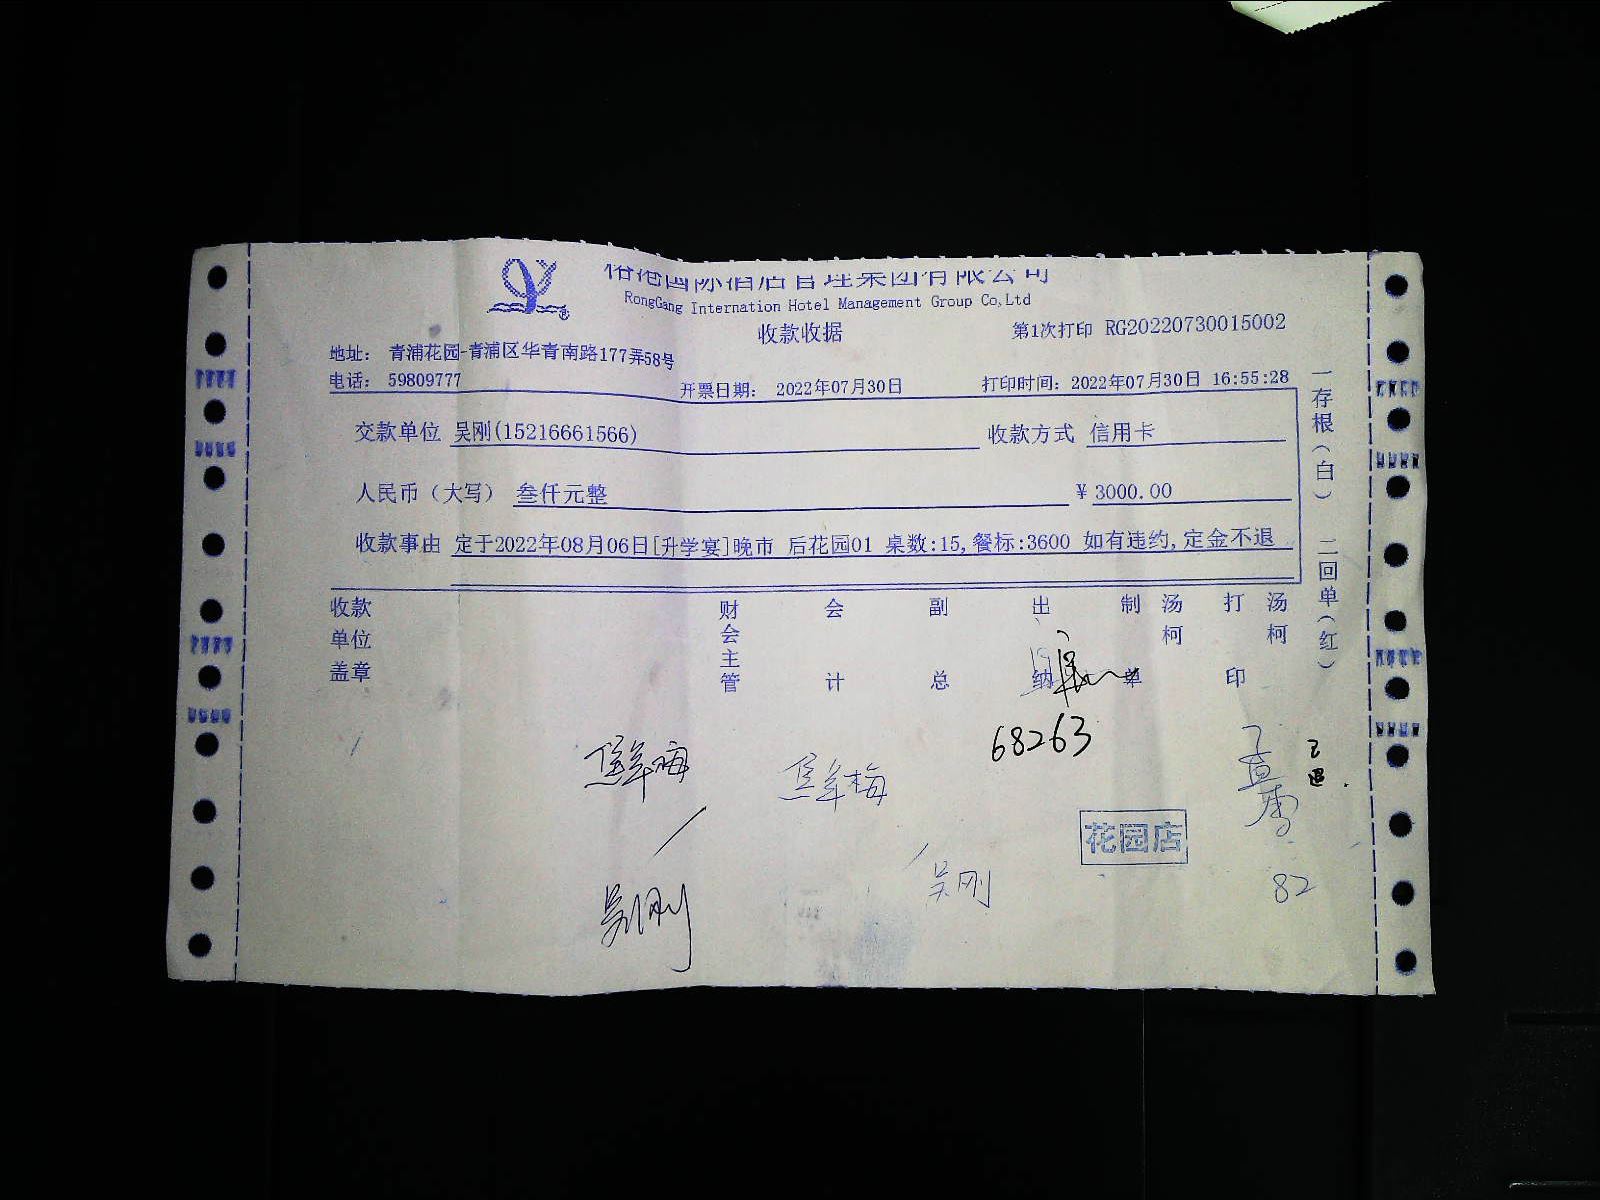 裕港国际酒店管理集团有限公司
RongGang Internation Hotel Management Group Co,Ltd
收款收据
第1次打印 RG20220730015002
地址： 青浦花园-青浦区华青南路177弄58号
电话： 59809777
开票日期： 2022年07月30日
打印时间：2022年07月30日 16:55:28
交款单位 吴刚(15216661566)
收款方式 信用卡
人民币（大写） 叁仟元整
￥ 3000.00
收款事由 定于2022年08月06日[升学宴]晚市 后花园01 桌数:15,餐标:3600 如有违约,定金不退
一存根（白） 二回单（红）
收款单位盖章
财会主管
会计
副总
出纳
制单
汤柯
打印
汤柯
68263
花园店
吴刚
吴刚
82